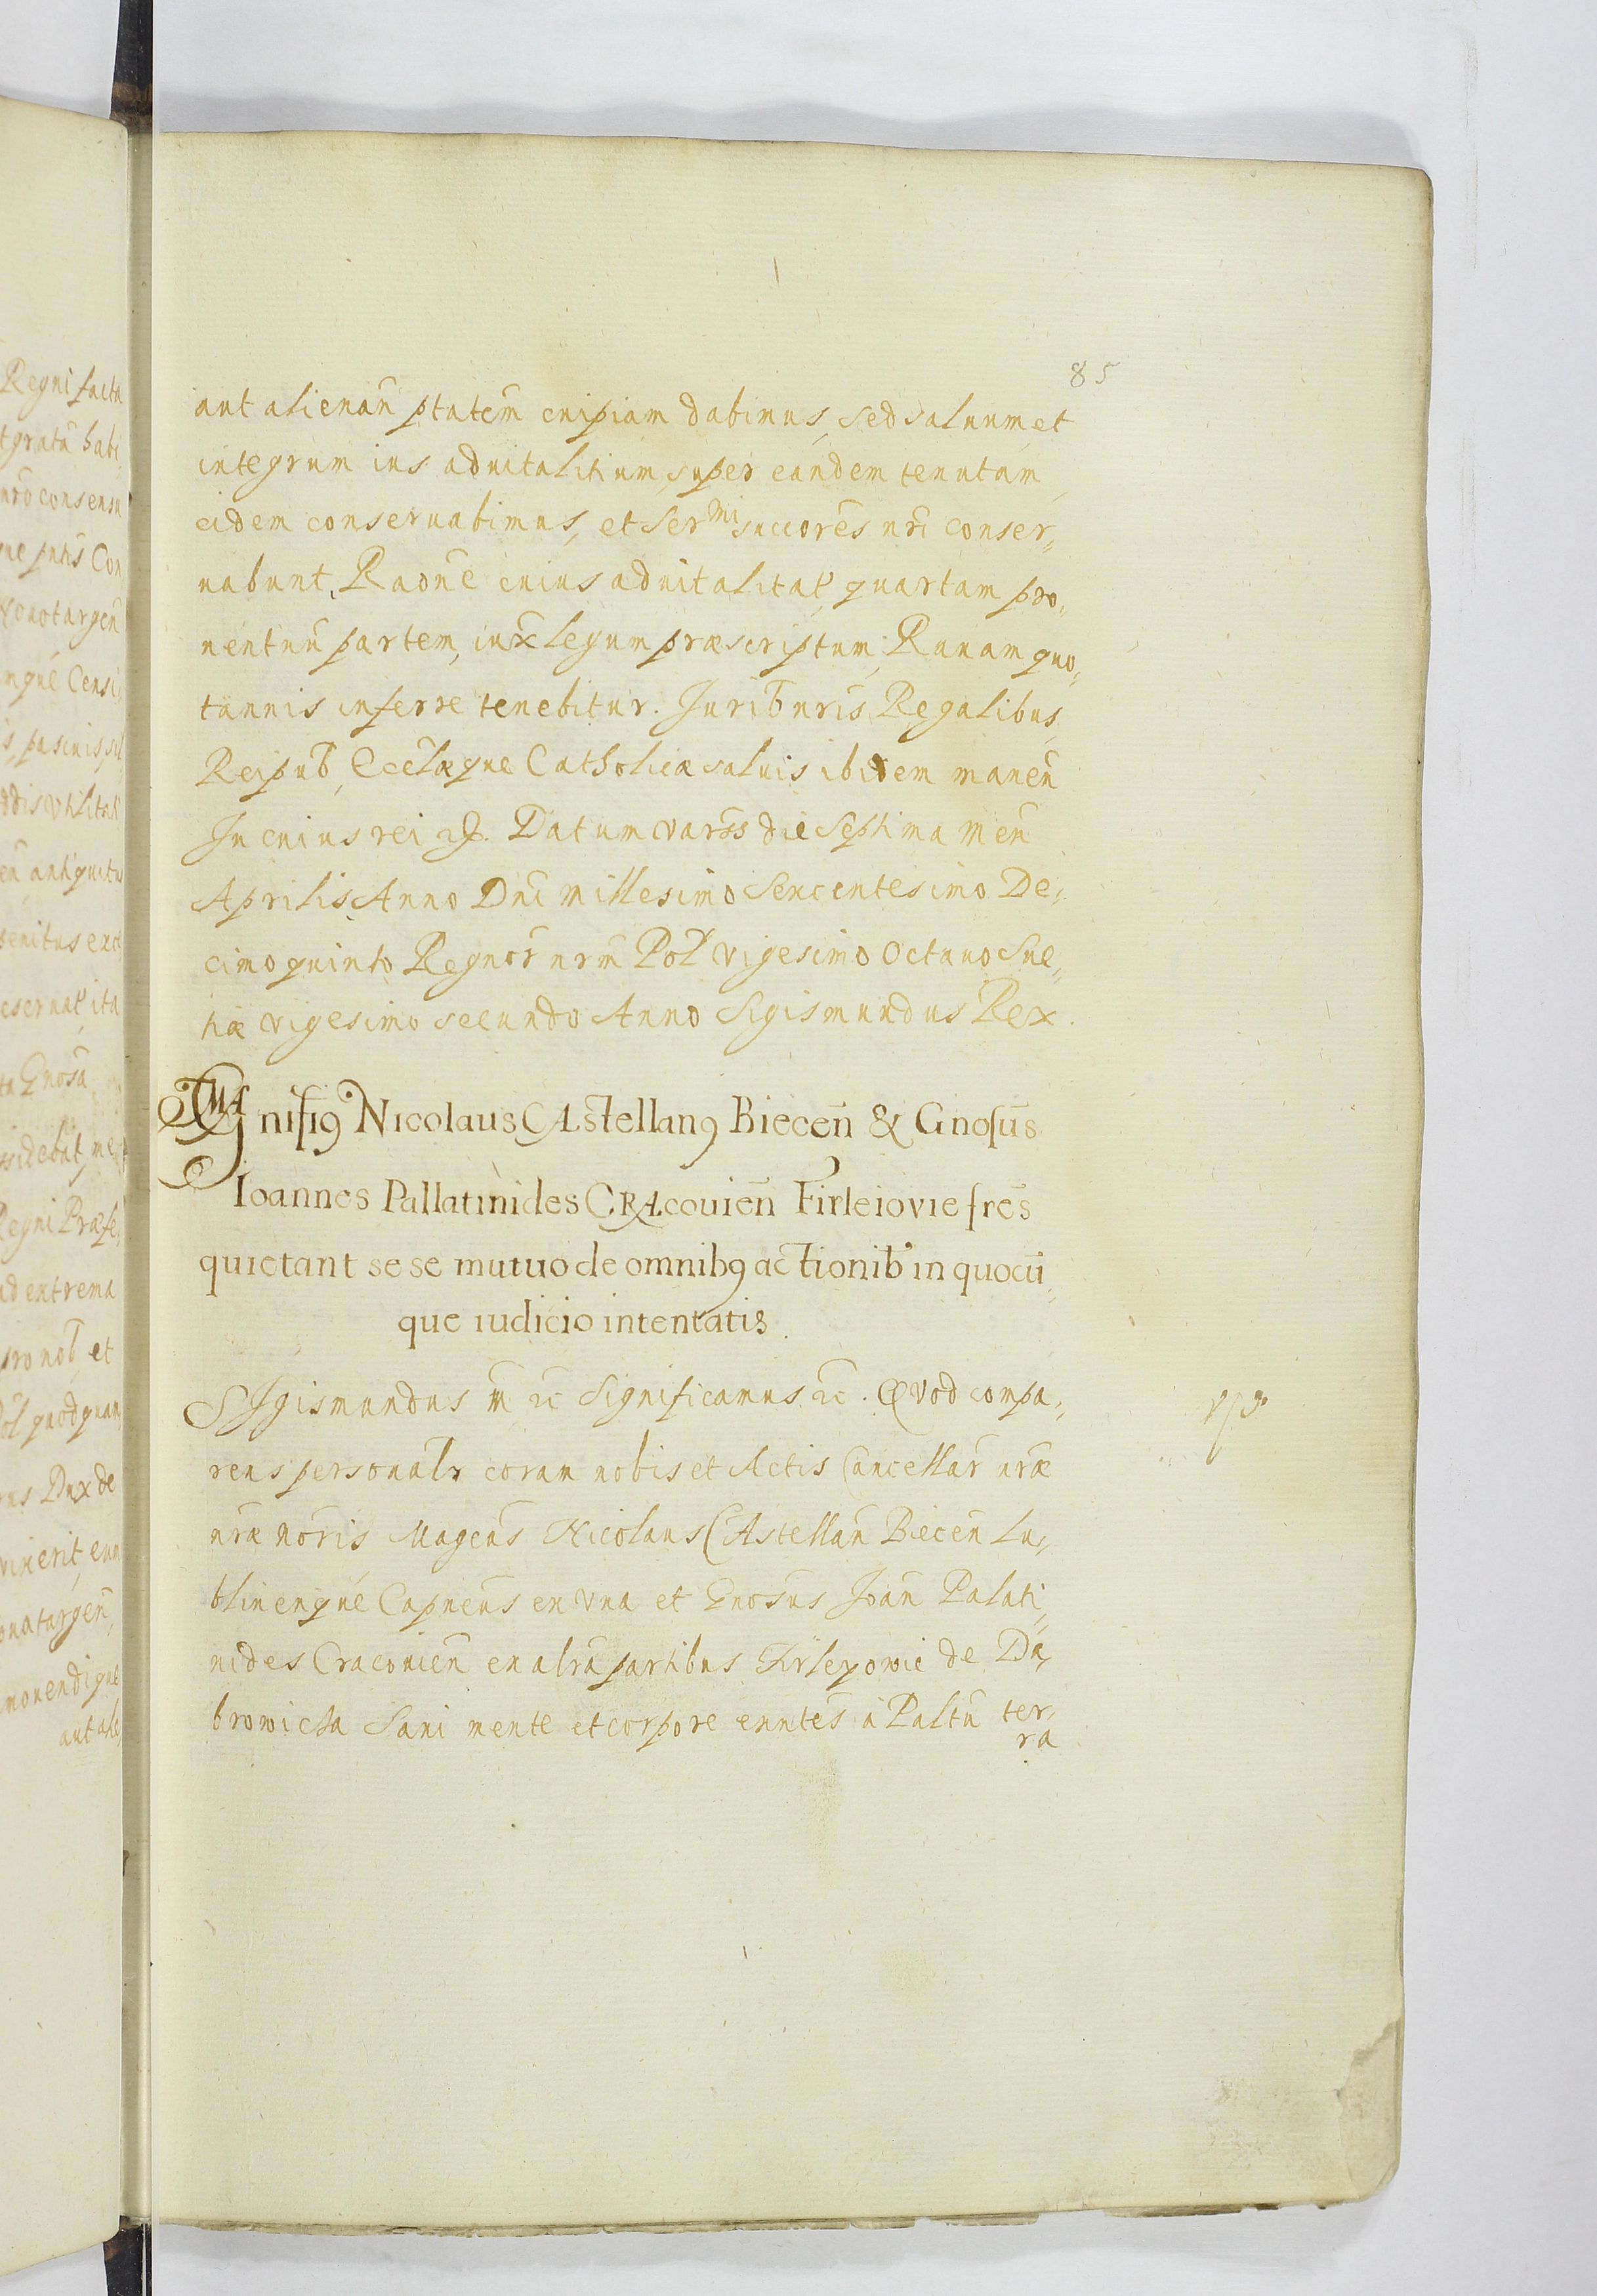 85
aut alienan̄ ptatem̄ cuipiam dabimus, sed saluum et
integrum ius aduitalitium super eandem tenutam
eidem conseruabimus, et Ser^mi succores̄ nri̅ conser„
uabunt, Raone̅ cuius aduitalitat̄ quartam pro„
uentuu̅ partem, iux̅ legum præscriptum, Rauam quo„
tannis inferre tenebitur. Jurib̅ nris̅, Regalibus
Reipub̅, Eccl̅æque Catholicæ saluis ibidem manen̅
In cuius rei &. Datum Vars̅s die Septima Men̅
Aprilis Anno Dni̅ Millesimo Sexcentesimo De„
cimoquinto Regnor̅ nrm̅ Pol̅ Vigesimo Octauo Sue„
tiæ Vigesimo secundo Anno Sigismundus Rex.
nifi9 Nicolaus CAstellan9 Biecen̅ & Gnosus̅
Ioannes Pallatinides CRAcouien̅ Firleiovie fres̅
quietant se se mutuo de omnib9 actionib' in quocu̅„
que iudicio intentatis.
SIgismundus m̅ &c̅ Significamus &c̅. QVod compa„
rens personalr̅ coram nobis et Actis Cancellar̅ nræ̅
nræ̅ Noris̅ Magcus̅ Nicolaus CAstellan̅ Biecen̅ Lu„
blinenque̅ Capneus̅ ex Vna et Gnosus̅ Joan̅ Palati„
nides Cracouien̅ ex altra̅ partibus Firleyowie de Da„
browicza Sani mente et corpore exnntes̅ à Paltu̅ ter„
ra
Regni facta
gratu̅ habe
nro̅ consensu
Con
Nouotargen̅
Censi
antiquitus
penitus
ita
Gnosa̅
Regni Præfe
ad extrema
pro nob̅ et
quodquam
Dux de
monendique
aut ale